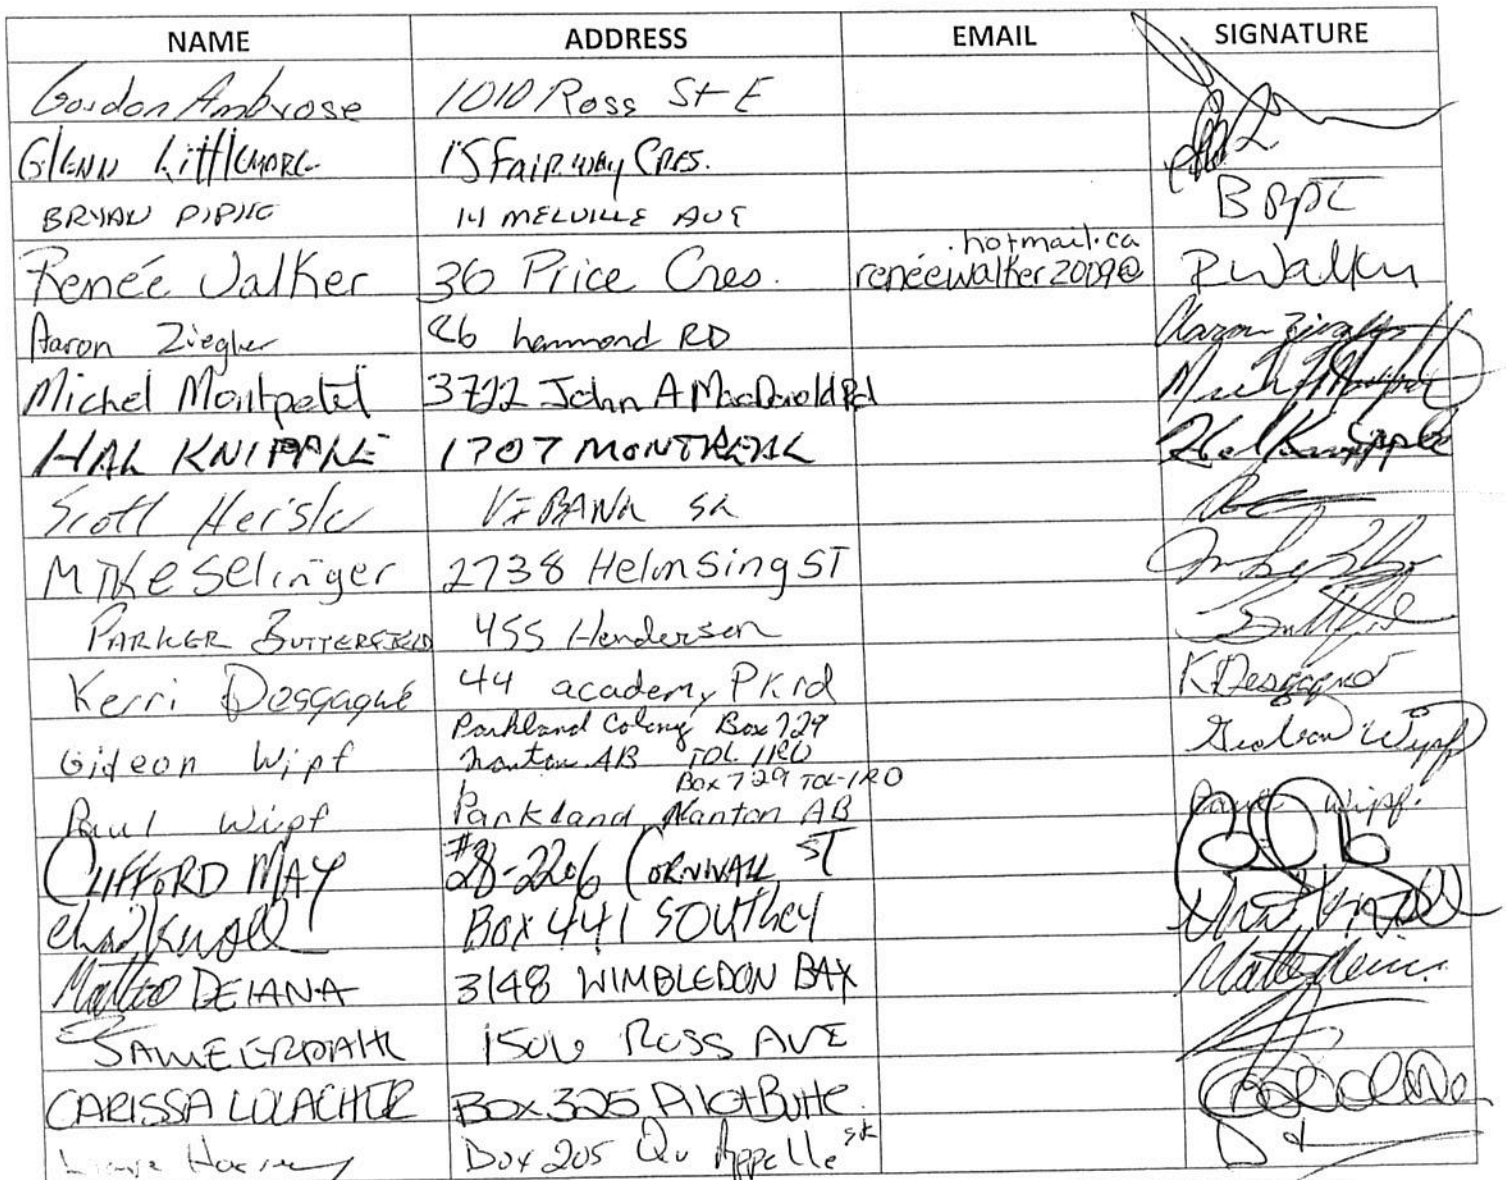 NAME ADDRESS EMAIL SIGNATURE
Gordon Ambrose 1010 Ross St E
Glenn Littlemore 15 Fairway Cres.
BRYAN 14 MELVILLE AVE
.hotmail.ca
Renée Walker 36 Price Cres. renéewalker2009@ R Walker
Aaron Ziegler 26 hammond RD Aaron Ziegler
Michel Montpetit 3722 John A MacDonald Rd
HAL KNIPPLE 1707 MONTREAL Hal Knipple
Scott Heisler VIBANK SK
MIKE Selinger 2738 Helmsing ST
PARKER BUTTERFIELD 455 Henderson
Kerri Desgagné 44 academy Pk rd K Desgagné
Parkland Colony Box 729
Gideon Wipf Nanton AB TOL 1RO Gideon Wipf
Box 729 TOL-1RO
Paul Wipf Parkland Nanton AB Paul Wipf.
CLIFFORD MAY #28-2206 CORNWALL ST
Chad Knoll Box 441 SOUTHEY Chad Knoll
Matteo DEIANA 3148 WIMBLEDON BAY
1506 ROSS AVE
CARISSA Box 325 Pilot Butte
Box 205 Qu Appelle SK